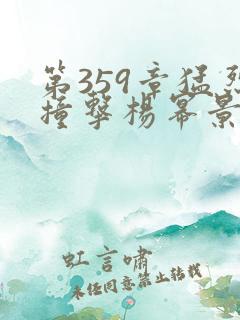 第359章猛烈
撞擊楊冪景
虹言啸
未经同意禁止转载